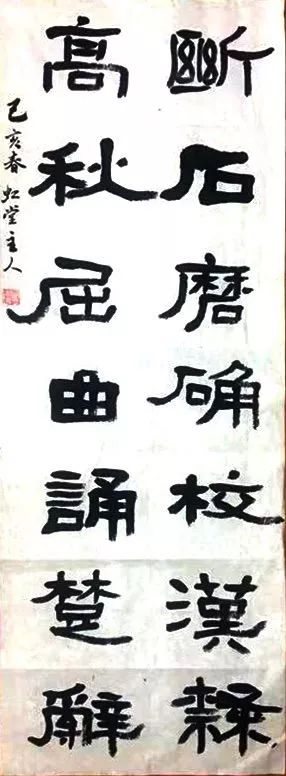 斷石磨确校漢隸
高秋屈曲誦楚辭
己亥春虹堂主人